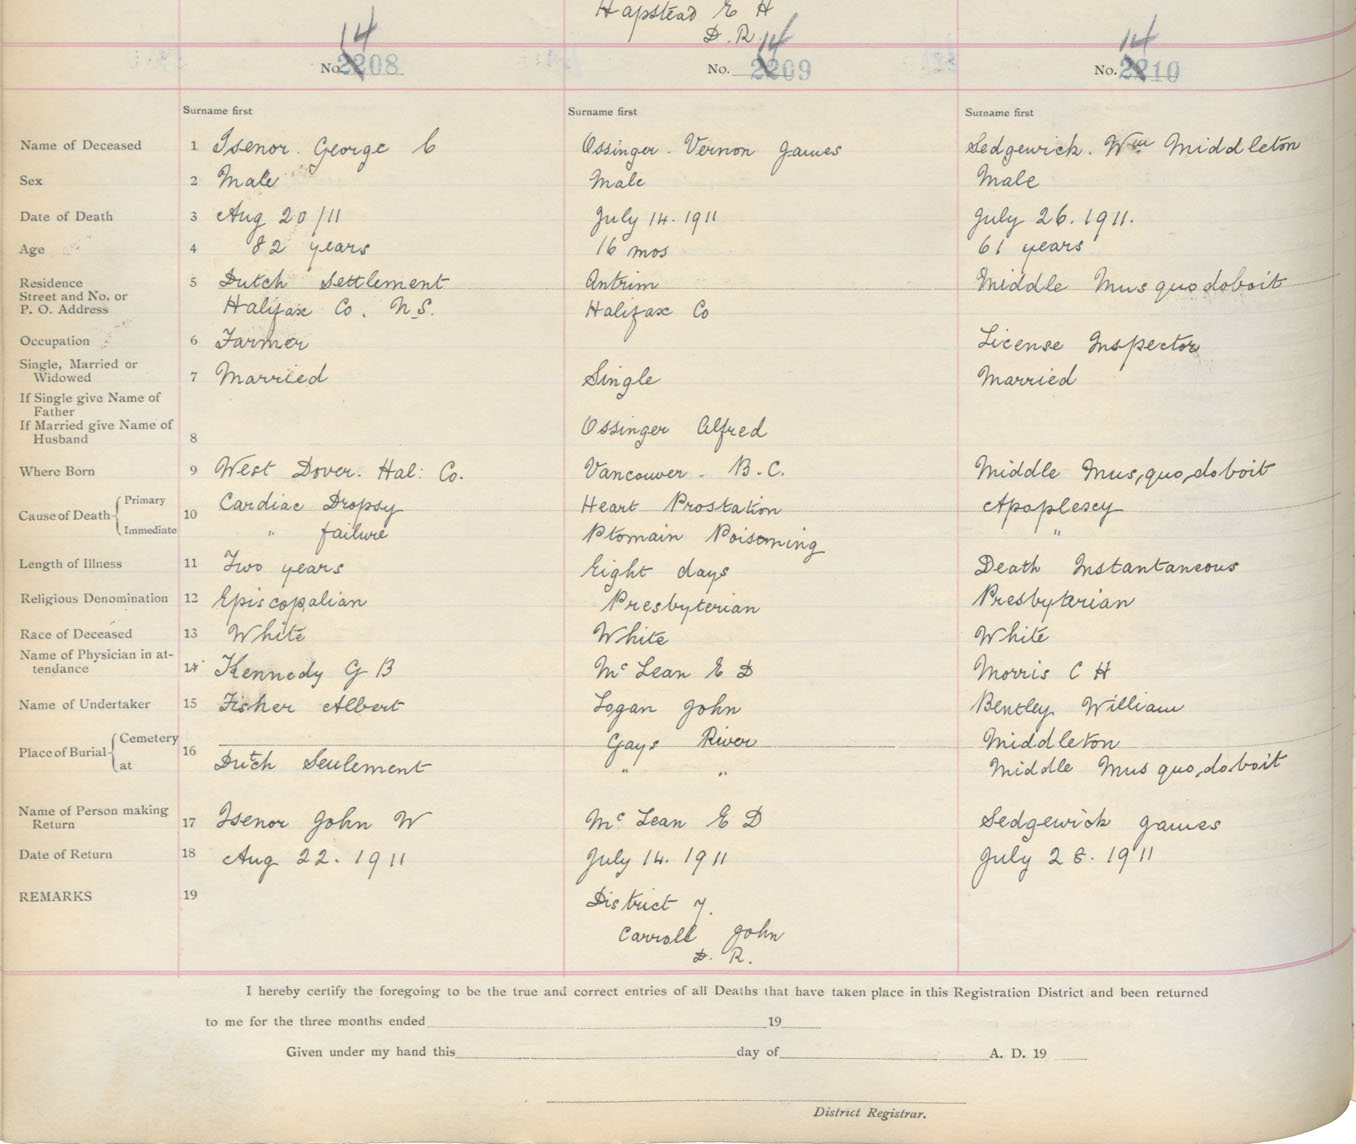 Hapstead E H
D. R.
14 14 14
No. 2208 No. 2209 No. 2210
Surname first Surname first Surname first
Name of Deceased 1 Isenor. George C Ossinger. Vernon James Sedgewick. Wm Middleton
Sex 2 Male Male Male
Date of Death 3 Aug 20/11 July 14. 1911 July 26. 1911.
Age 4 82 years 16 mos 61 years
Residence 5 Dutch Settlement Antrim Middle Musquodoboit
Street and No. or
P. O. Address Halifax Co. N.S. Halifax Co
Occupation 6 Farmer License Inspector
Single, Married or
Widowed 7 Married Single Married
If Single give Name of
Father
If Married give Name of Ossinger Alfred
Husband 8
Where Born 9 West Dover. Hal: Co. Vancouver. B.C. Middle Musquodoboit
Cause of Death Primary 10 Cardiac Dropsy Heart Prostation Apoplexy
Immediate " failure Ptomain Poisoning "
Length of Illness 11 Two years Eight days Death Instantaneous
Religious Denomination 12 Episcopalian Presbyterian Presbyterian
Race of Deceased 13 White White White
Name of Physician in at-
tendance 14 Kennedy G B McLean E D Morris C H
Name of Undertaker 15 Fisher Albert Logan John Bentley William
Place of Burial Cemetery 16 Gays River Middleton
at Dutch Seulement " " Middle Musquodoboit
Name of Person making
Return 17 Isenor John W McLean E D Sedgewick James
Date of Return 18 Aug 22. 1911 July 14. 1911 July 28. 1911
REMARKS 19 District 7.
Carroll John
D. R.
I hereby certify the foregoing to be the true and correct entries of all Deaths that have taken place in this Registration District and been returned
to me for the three months ended 19
Given under my hand this day of A. D. 19
District Registrar.